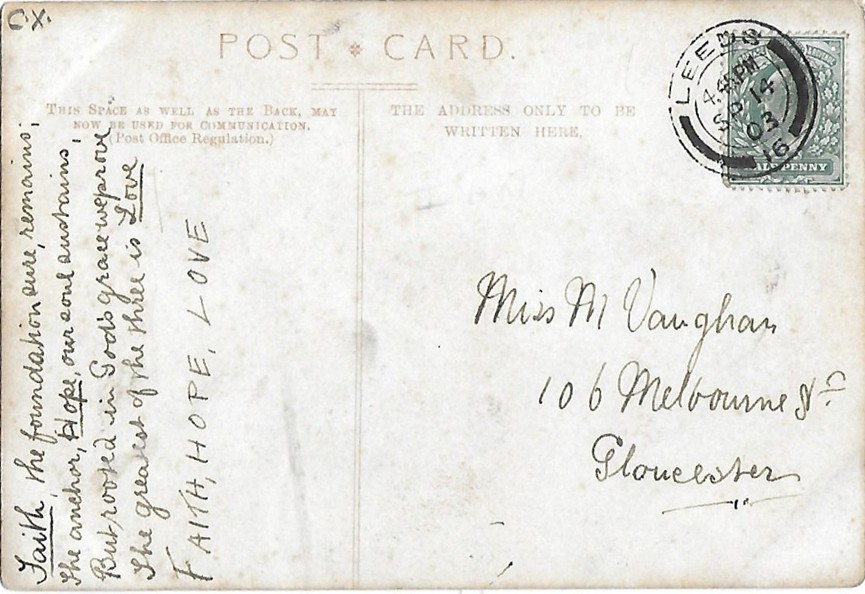 C.X.
POST CARD.
THIS SPACE AS WELL AS THE BACK, MAY
NOW BE USED FOR COMMUNICATION.
(Post Office Regulation.)
THE ADDRESS ONLY TO BE
WRITTEN HERE.
LEEDS
4.45PM
SP 14
03
16
HALFPENNY
Faith, the foundation sure, remains;
The anchor, Hope, our soul sustains;
But rooted in God's grace we prove
The greatest of the three is Love
FAITH, HOPE, LOVE
Miss M Vaughan
106 Melbourne St
Gloucester